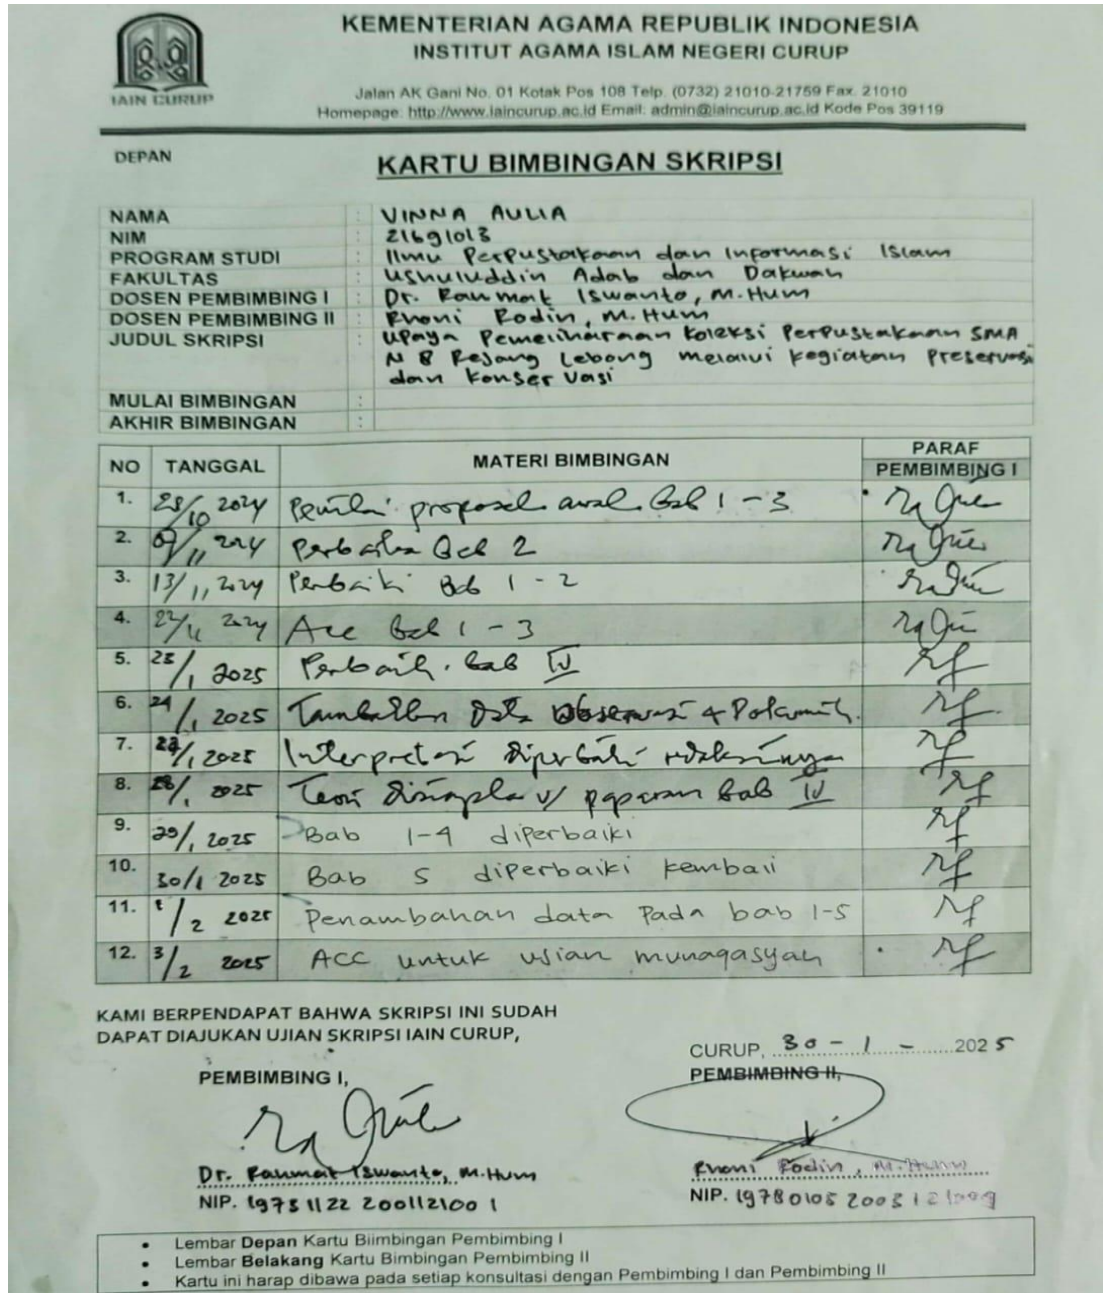 KEMENTERIAN AGAMA REPUBLIK INDONESIA
INSTITUT AGAMA ISLAM NEGERI CURUP
IAIN CURUP
Jalan AK Gani No. 01 Kotak Pos 108 Telp. (0732) 21010-21759 Fax. 21010
Homepage: http://www.iaincurup.ac.id Email: admin@iaincurup.ac.id Kode Pos 39119
DEPAN
KARTU BIMBINGAN SKRIPSI
NAMA : VINNA AULIA
NIM : 21691013
PROGRAM STUDI : Ilmu Perpustakaan dan Informasi Islam
FAKULTAS : Ushuluddin Adab dan Dakwah
DOSEN PEMBIMBING I : Dr. Rahmat Iswanto, M.Hum
DOSEN PEMBIMBING II : Rhoni Rodin, M.Hum
JUDUL SKRIPSI : Upaya Pemeliharaan Koleksi Perpustakaan SMA
N 8 Rejang Lebong melalui kegiatan Preservasi
dan Konservasi
MULAI BIMBINGAN :
AKHIR BIMBINGAN :
NO TANGGAL MATERI BIMBINGAN PARAF
PEMBIMBING I
1. /10 2024 proposal awal Bab 1 - 3
2. /11 2024 Bab 2
3. 13/11 2024 Perbaiki Bab 1 - 2
4. 2024 Acc Bab 1 - 3
5. 23/1 2025 Bab IV
6. 24/1 2025 Tambahkan Data Observasi +
7. /1 2025 Interpretasi diperbaiki redaksinya
8. 28/1 2025 Teori paparan bab IV
9. /1 2025 Bab 1-4 diperbaiki
10. 30/1 2025 Bab 5 diperbaiki kembali
11. /2 2025 Penambahan data Pada bab 1-5
12. 3/2 2025 ACC untuk ujian munaqasyah
KAMI BERPENDAPAT BAHWA SKRIPSI INI SUDAH
DAPAT DIAJUKAN UJIAN SKRIPSI IAIN CURUP,
CURUP, 30 - 1 - 2025
PEMBIMBING I,
PEMBIMBING II,
Dr. Rahmat Iswanto, M.Hum
NIP. 19731122 200112100 1
Rhoni Rodin, M.Hum
NIP. 19780105 2003121
• Lembar Depan Kartu Biimbingan Pembimbing I
• Lembar Belakang Kartu Bimbingan Pembimbing II
• Kartu ini harap dibawa pada setiap konsultasi dengan Pembimbing I dan Pembimbing II